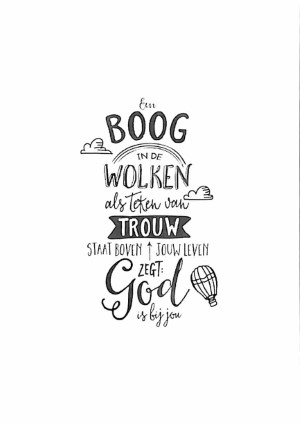 Een
BOOG
IN DE
WOLKEN
als teken van
TROUW
STAAT BOVEN JOUW LEVEN
ZEGT:
God
is bij jou